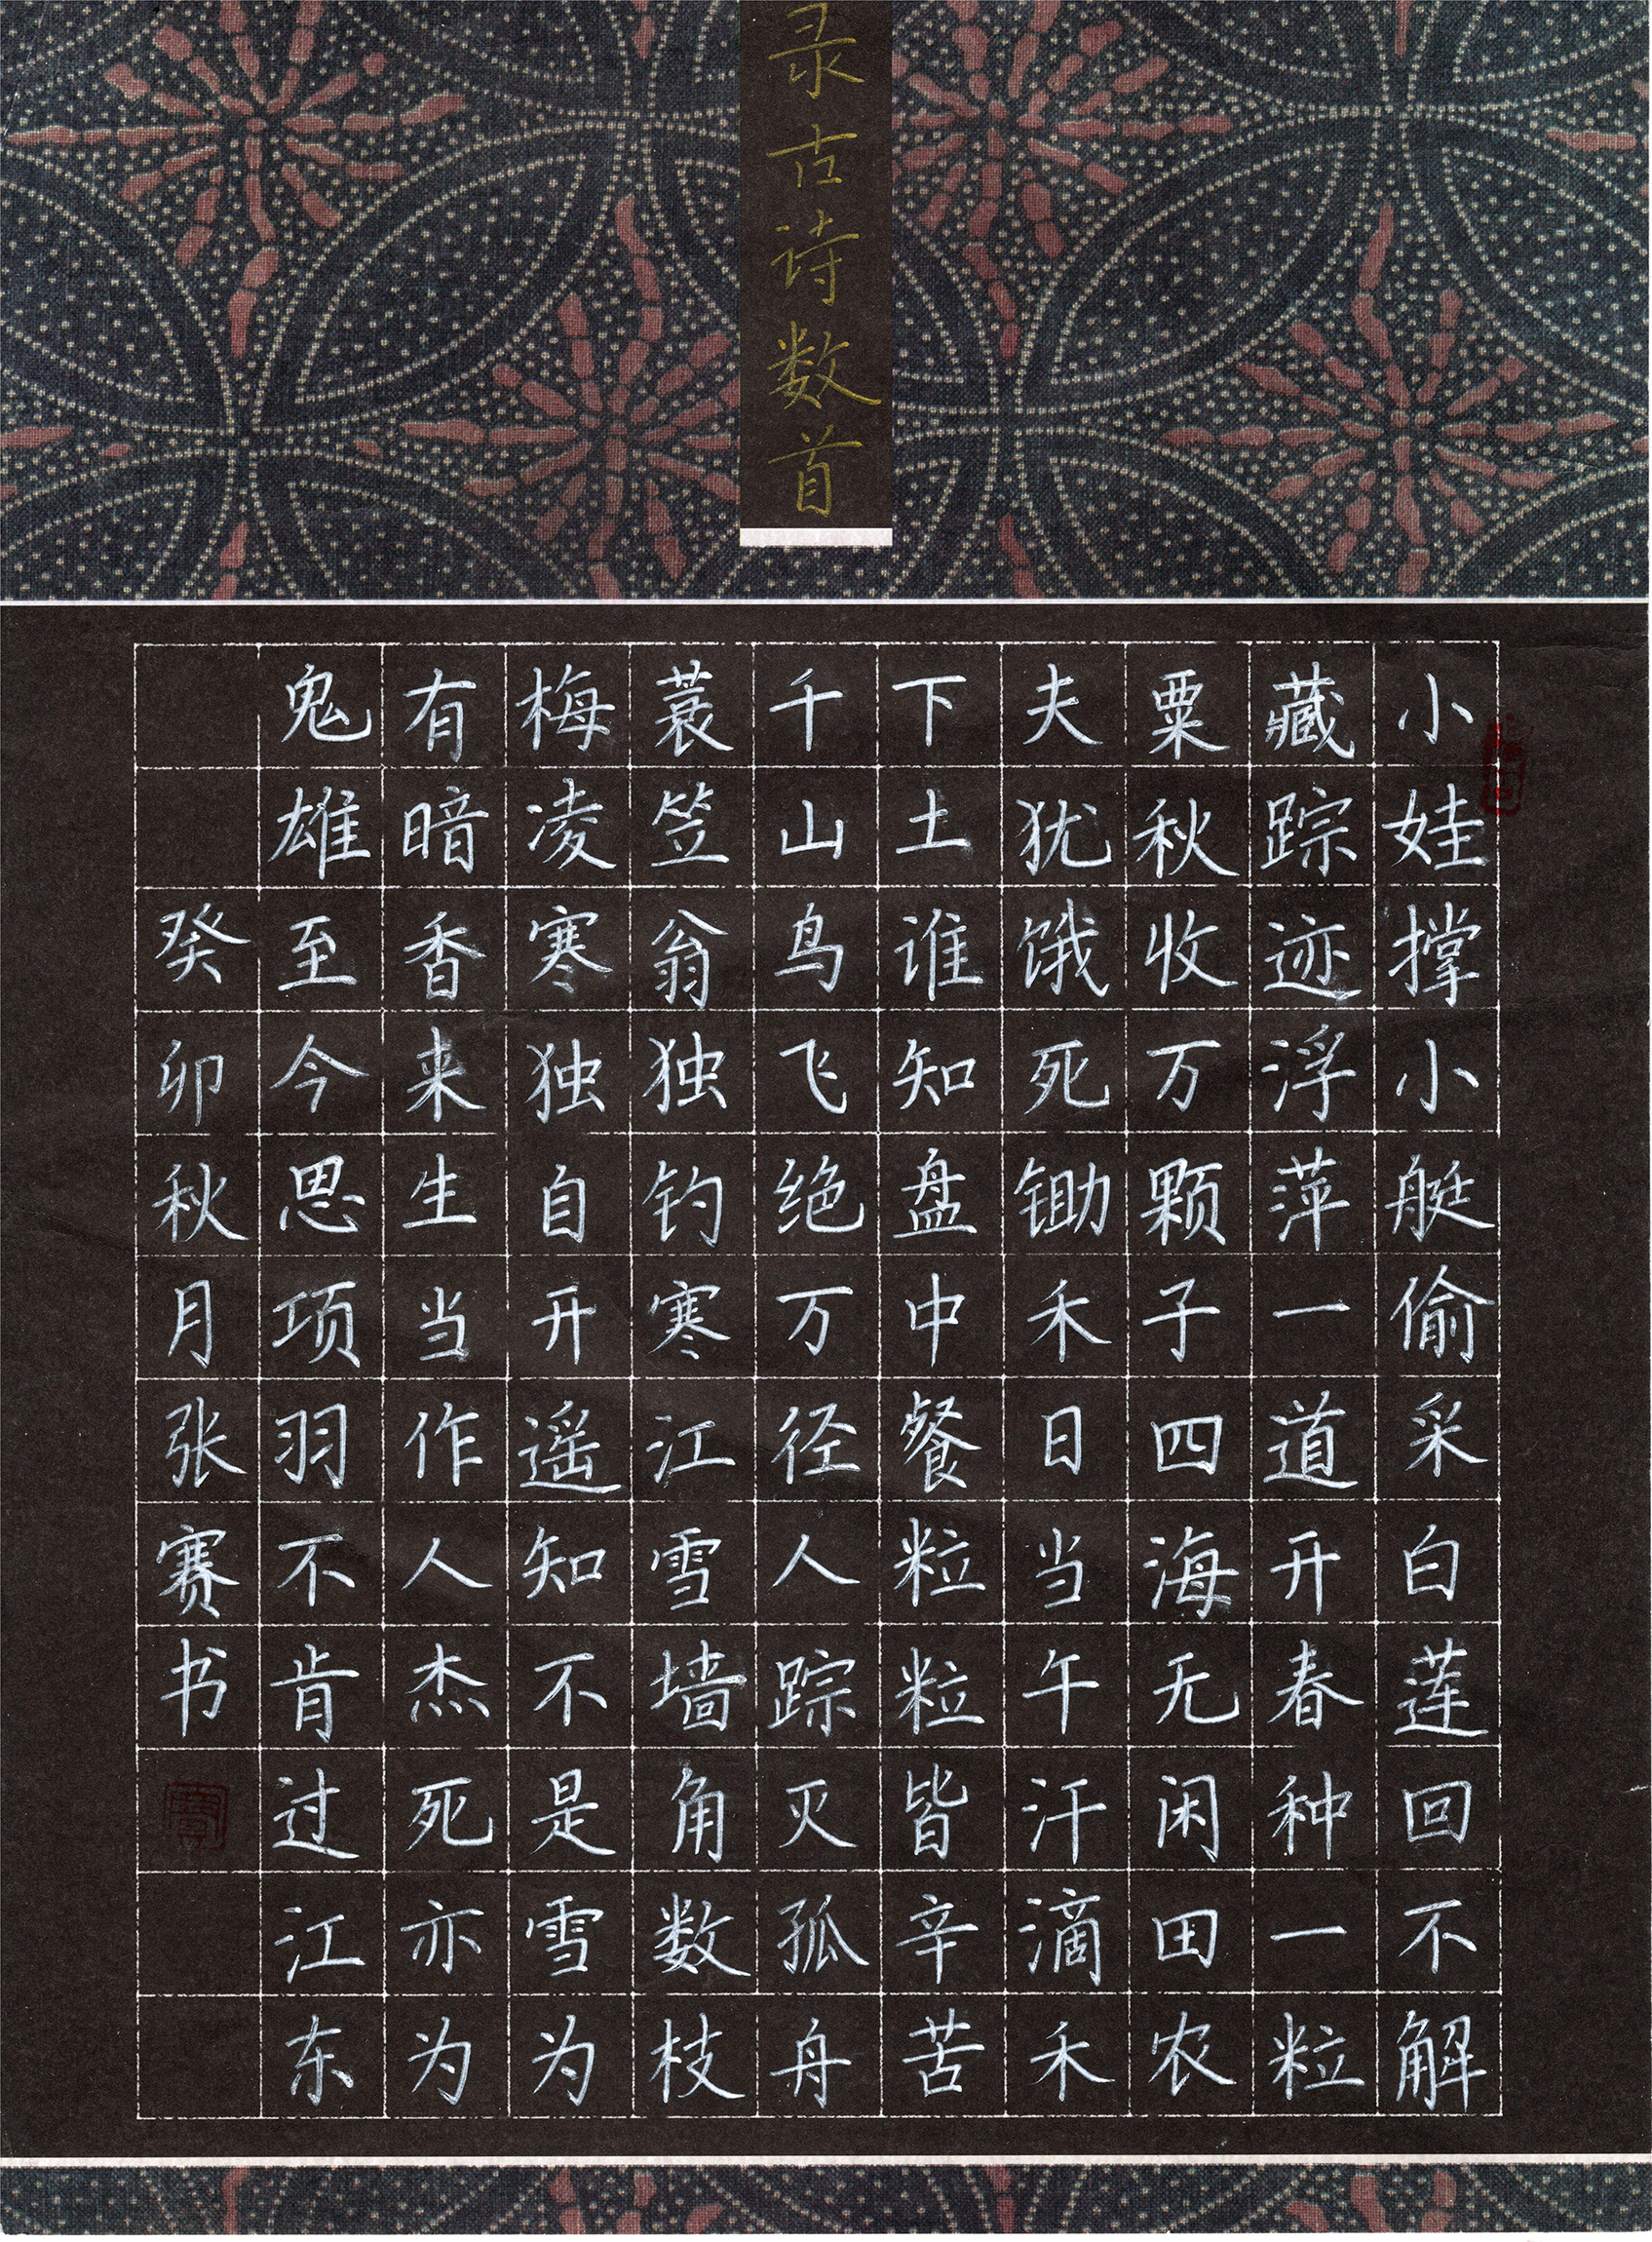 录古诗数首
小娃撑小艇偷采白莲回不解
藏踪迹浮萍一道开春种一粒
粟秋收万颗子四海无闲田农
夫犹饿死锄禾日当午汗滴禾
下土谁知盘中餐粒粒皆辛苦
千山鸟飞绝万径人踪灭孤舟
蓑笠翁独钓寒江雪墙角数枝
梅凌寒独自开遥知不是雪为
有暗香来生当作人杰死亦为
鬼雄至今思项羽不肯过江东
癸卯秋月张赛书